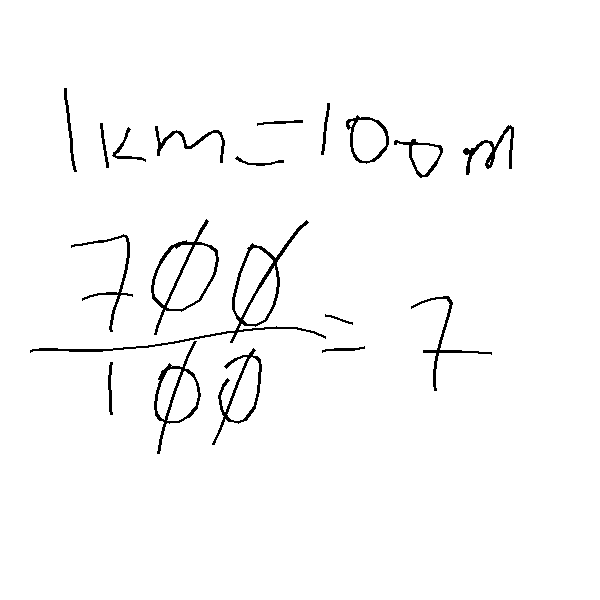 1km=100m
700/100=7